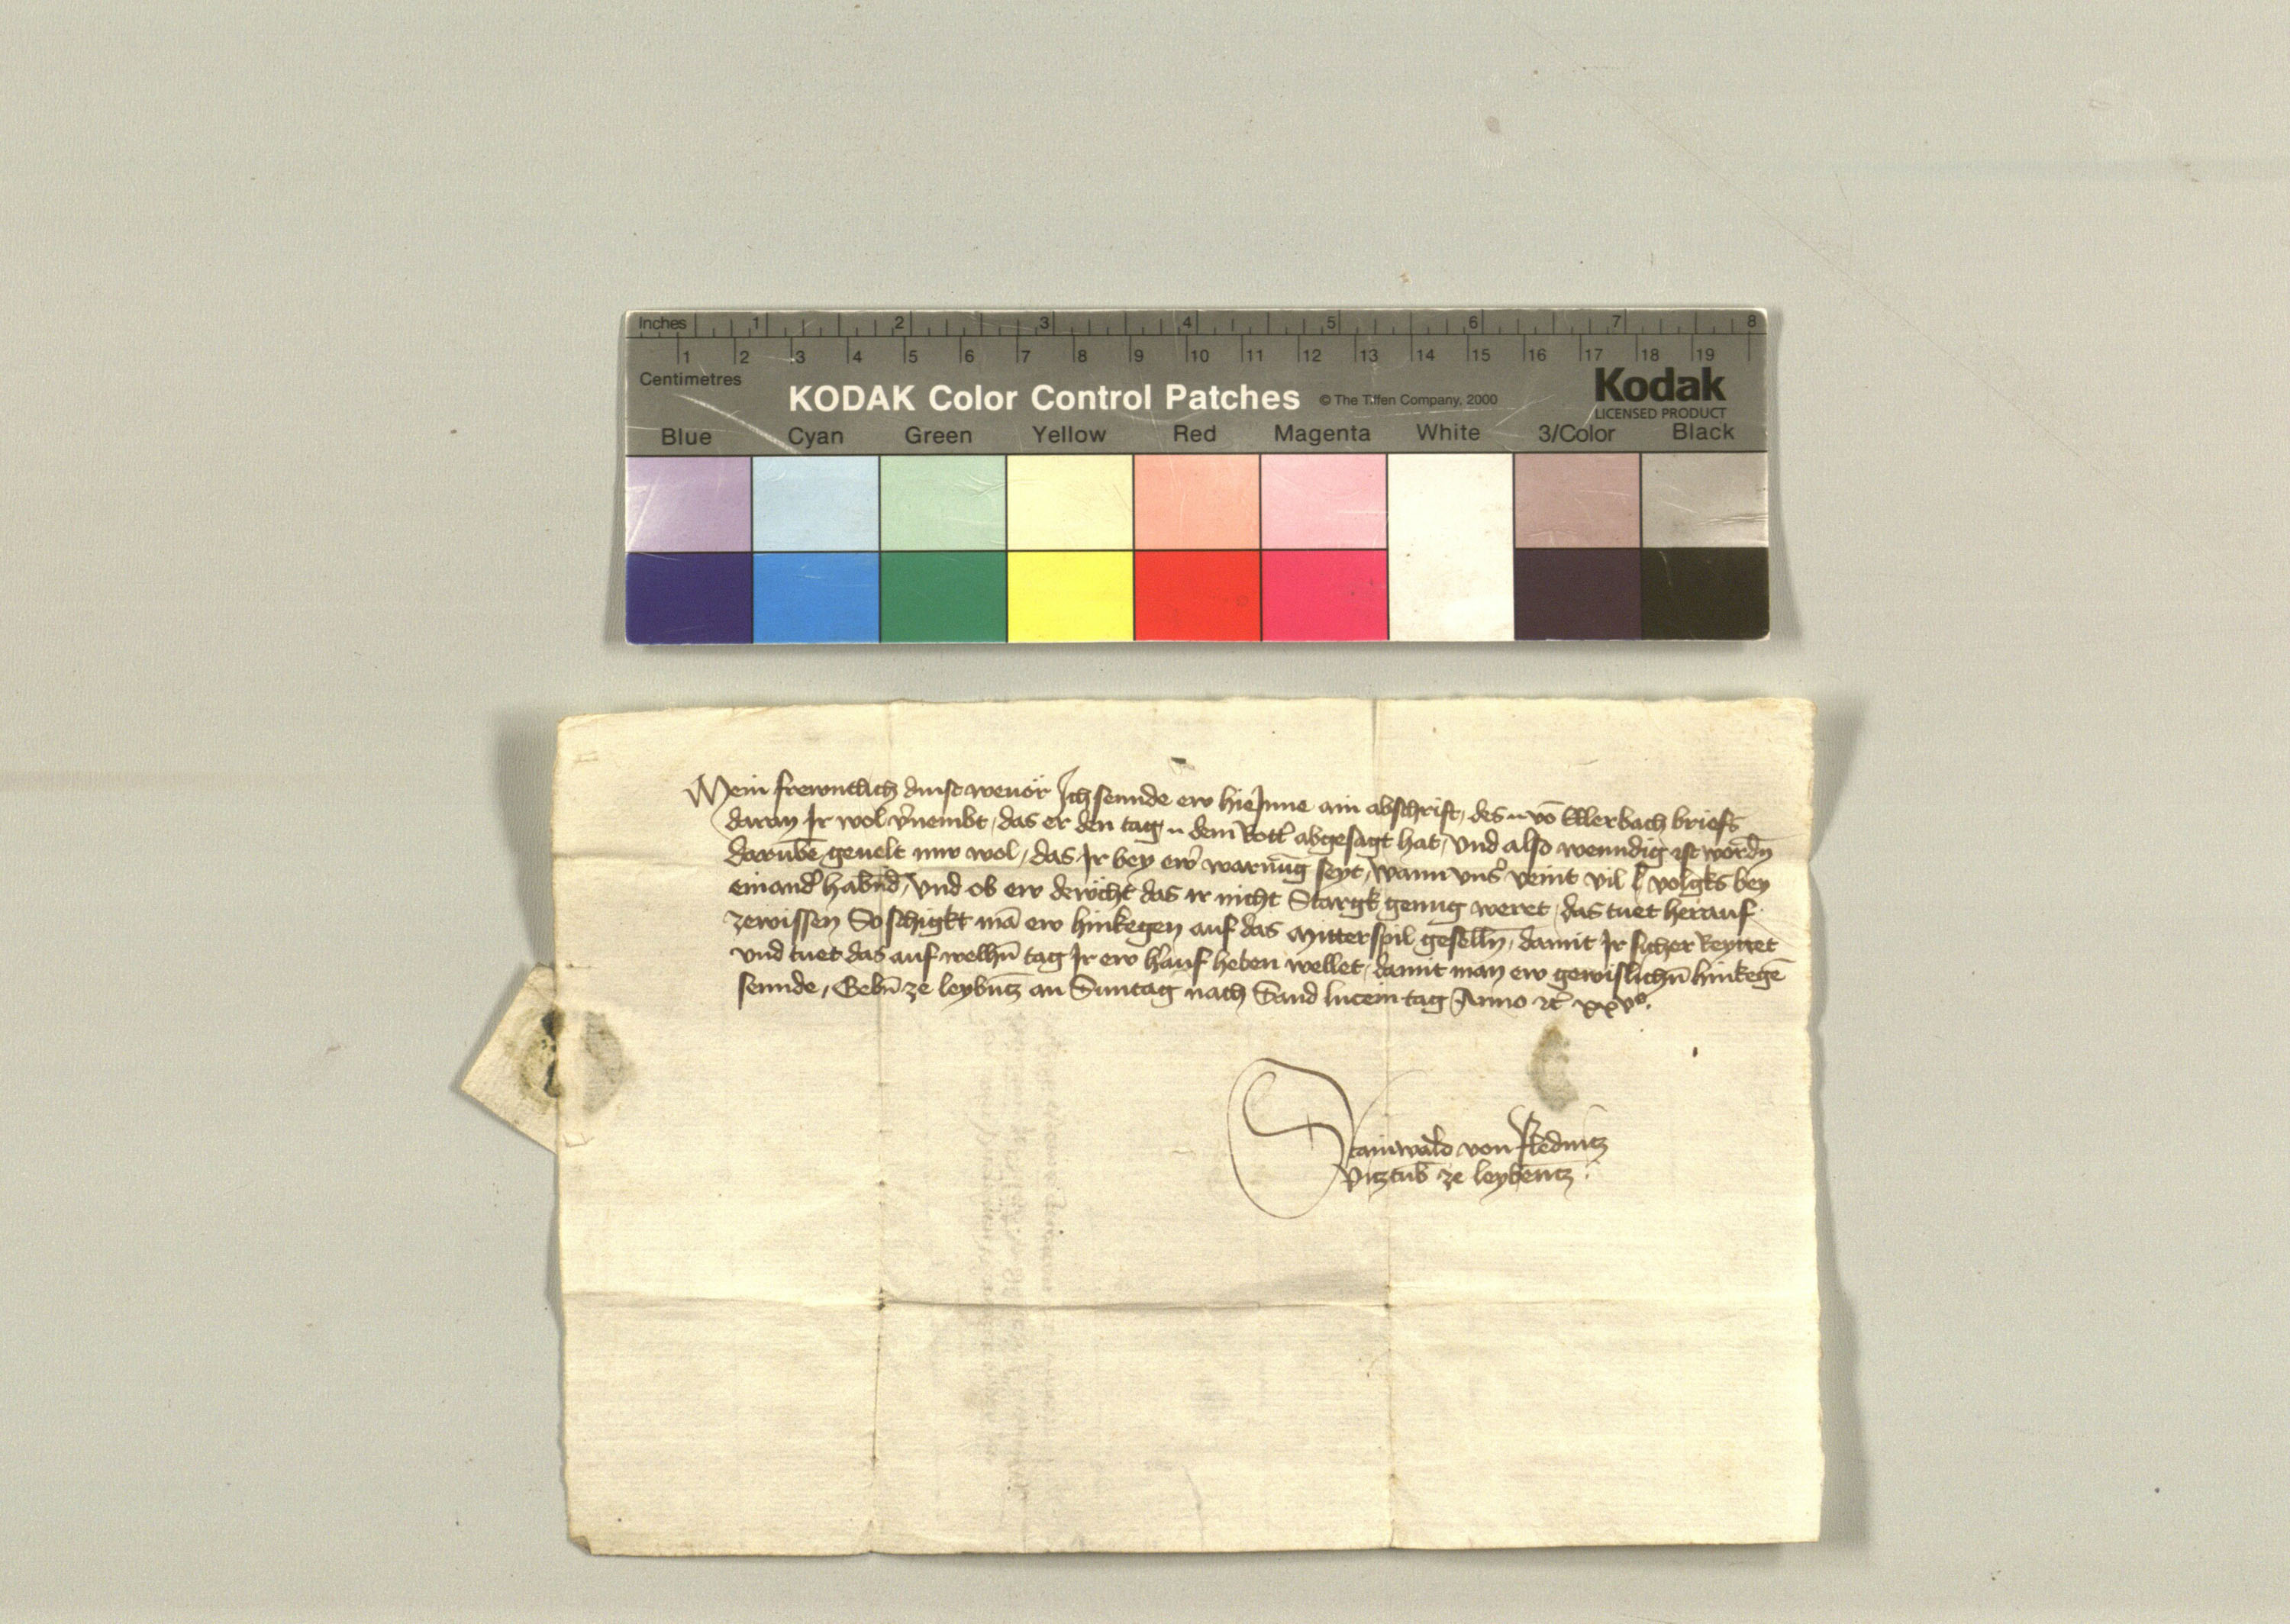 Inches 1 2 3 4 5 6 7 8
1 2 3 4 5 6 7 8 9 10 11 12 13 14 15 16 17 18 19
Centimetres
KODAK Color Control Patches © The Tiffen Company, 2000 Kodak
LICENSED PRODUCT
Blue Cyan Green Yellow Red Magenta White 3/Color Black
Mein frewntlich dinst wenor Ich sennde ew hieInne ain abschrift, des vō Ellerbach briefs
daran Ir wol v̄nembt, das er den tag dem Rotl abgesagt hat, Und also wenndig ist wordn̄
darūbē geuelt mir wol, das Ir bey ew̄ warnūg seyt, wann vns̄ veint vil volgks bey
einand̄ habn̄d, Und ob ew dewcht das ir nicht Stargk genug weret, das tuet herauf
zewissen So schigkt mā ew hinkegen auf das Mitterspil geselln̄, damit Ir sicher Reyttet
und tuet das auf welhn̄ tag Ir ew h̄auf heben wellet, damit man ew gewislichn̄ hinkegē
sennde, Gebn̄ ze leybn̄tz an Sunntag nach Sand lucein tag Anno rc̄ xxvo.
Stainwald von flednitz
Vitztūb ze leybēntz